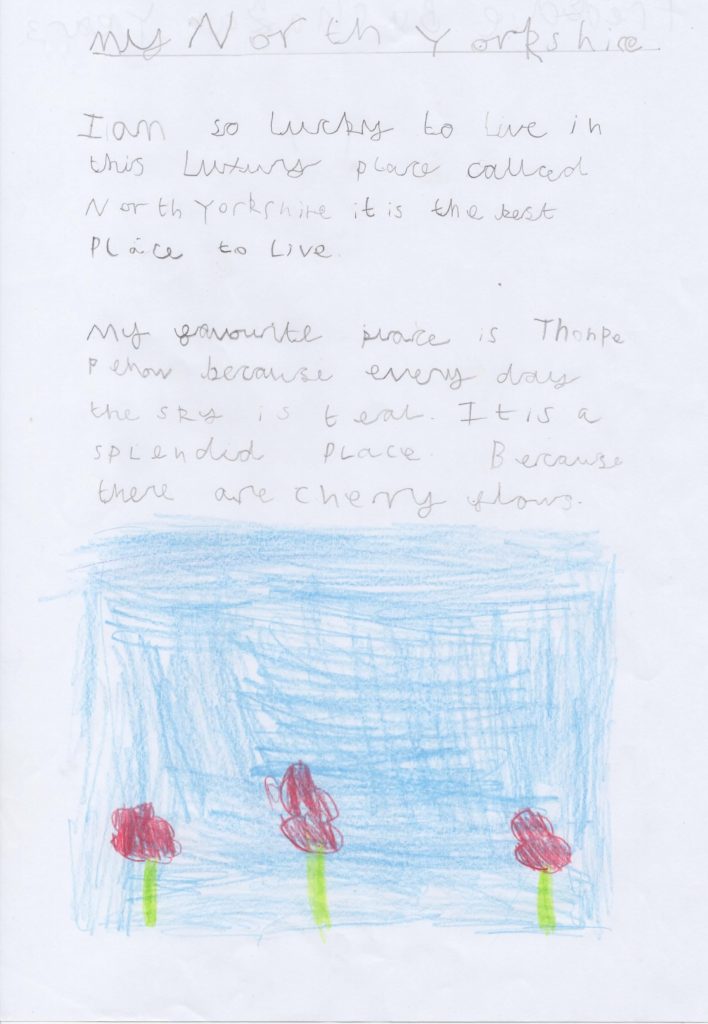 my North Yorkshire
I am so lucky to live in
this luxury place called
North Yorkshire it is the best
Place to Live.
My favourite place is Thorpe
Perrow because every day
the sky is teal. It is a
splendid place. Because
there are cherry flows.